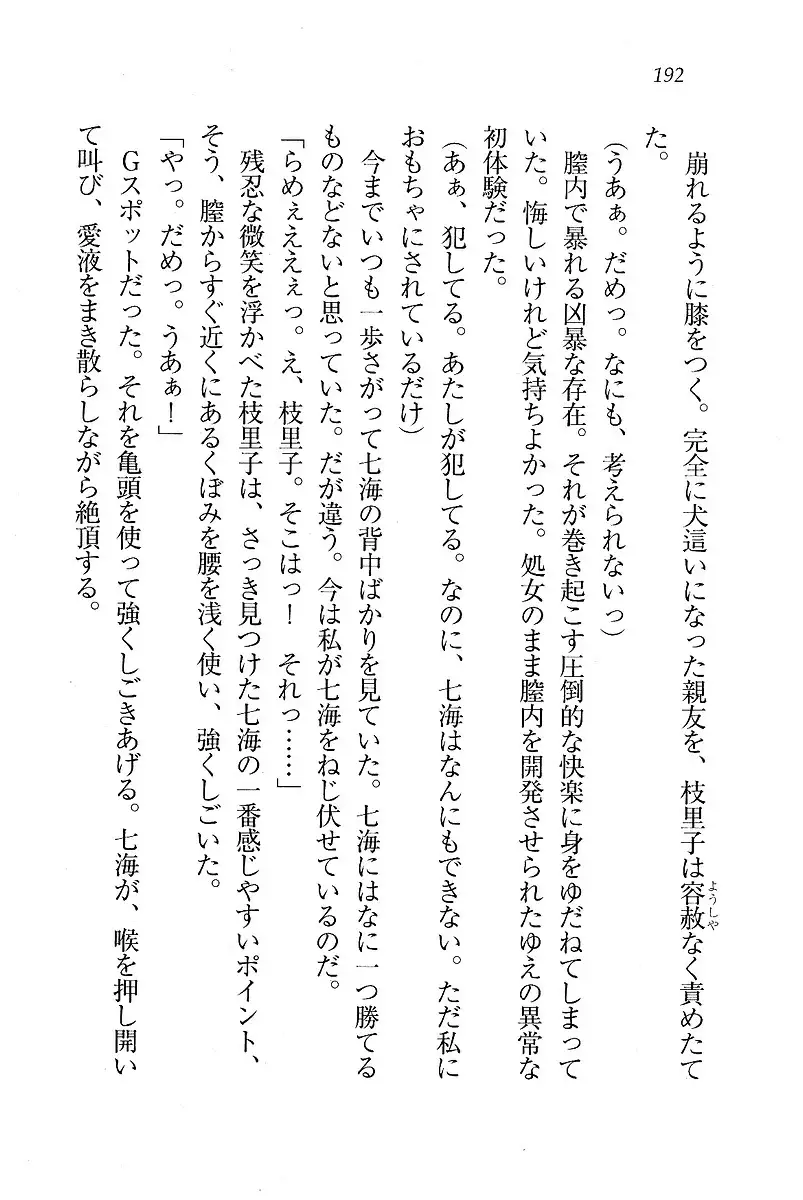 192
崩れるように膝をつく。完全に犬這いになった親友を、枝里子は容赦なく責めたて
ようしゃ
た。
(うあぁ。だめっ。なにも、考えられないっ)
膣内で暴れる凶暴な存在。それが巻き起こす圧倒的な快楽に身をゆだねてしまって
いた。悔しいけれど気持ちよかった。処女のまま膣内を開発させられたゆえの異常な
初体験だった。
(あぁ、犯してる。あたしが犯してる。なのに、七海はなんにもできない。ただ私に
おもちゃにされているだけ)
今までいつも一歩さがって七海の背中ばかりを見ていた。七海にはなに一つ勝てる
ものなどないと思っていた。だが違う。今は私が七海をねじ伏せているのだ。
「らめぇえええぇっ。え、枝里子。そこはっ！　それっ……」
残忍な微笑を浮かべた枝里子は、さっき見つけた七海の一番感じやすいポイント、
そう、膣からすぐ近くにあるくぼみを腰を浅く使い、強くしごいた。
「やっ。だめっ。うあぁ！」
Gスポットだった。それを亀頭を使って強くしごきあげる。七海が、喉を押し開い
て叫び、愛液をまき散らしながら絶頂する。